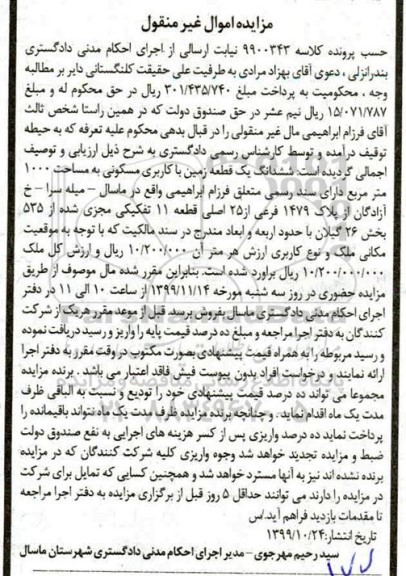 مزایده اموال غیر منقول
حسب پرونده کلاسه ۹۹۰۰۳۴۳ نیابت ارسالی از اجرای احکام مدنی دادگستری
بندرانزلی ، دعوی آقای بهزاد مرادی به طرفیت علی حقیقت کلنگستانی دایر بر مطالبه
وجه ، محکومیت به پرداخت مبلغ ۳۰۱/۴۳۵/۷۴۰ ریال در حق محکوم له و مبلغ
۱۵/۰۷۱/۷۸۷ ریال نیم عشر در حق صندوق دولت که در همین راستا شخص ثالث
آقای فرزام ابراهیمی مال غیر منقولی را در قبال بدهی محکوم علیه تعرفه که به حیطه
توقیف درآمده و توسط کارشناس رسمی دادگستری به شرح ذیل ارزیابی و توصیف
اجمالی گردیده است. ششدانگ یک قطعه زمین با کاربری مسکونی به مساحت ۱۰۰۰
متر مربع دارای سند رسمی متعلق فرزام ابراهیمی واقع در ماسال – میله سرا – خ
آزادگان از پلاک ۱۴۷۹ فرعی از ۲۵ اصلی قطعه ۱۱ تفکیکی مجزی شده از ۵۳۵
بخش ۲۶ گیلان با حدود اربعه و ابعاد مندرج در سند مالکیت که با توجه به موقعیت
مکانی ملک و نوع کاربری ارزش هر متر آن ۱۰/۲۰۰/۰۰۰ ریال و ارزش کل ملک
۱۰/۲۰۰/۰۰۰/۰۰۰ ریال براورد شده است. بنابراین مقرر شده مال موصوف از طریق
مزایده حضوری در روز سه شنبه مورخه ۱۳۹۹/۱۱/۱۴ از ساعت ۱۰ الی ۱۱ در دفتر
اجرای احکام مدنی دادگستری ماسال بفروش برسد قبل از موعد مقرر هریک از شرکت
کنندگان به دفتر اجرا مراجعه و مبلغ ده درصد قیمت پایه را واریز و رسید دریافت نموده
و رسید مربوطه را به همراه قیمت پیشنهادی بصورت مکتوب در وقت مقرر به دفتر اجرا
ارائه نمایند و درخواست افراد بدون پیوست فیش فاقد اعتبار می باشد . برنده مزایده
مجوعا می تواند ده درصد قیمت پیشنهادی خود را تودیع و نسبت به الباقی ظرف
مدت یک ماه اقدام نماید . و چنانچه برنده مزایده ظرف مدت یک ماه نتواند باقیمانده را
پرداخت نماید ده درصد واریزی پس از کسر هزینه های اجرایی به نفع صندوق دولت
ضبط و مزایده تجدید خواهد شد وجوه واریزی کلیه شرکت کنندگان که در مزایده
برنده نشده اند نیز به آنها مسترد خواهد شد و همچنین کسایی که تمایل برای شرکت
در مزایده را دارند می توانند حداقل ۵ روز قبل از برگزاری مزایده به دفتر اجرا مراجعه
تا مقدمات بازدید فراهم آید.اس
تاریخ انتشار: ۱۳۹۹/۱۰/۲۴
سید رحیم مهرجوی – مدیر اجرای احکام مدنی دادگستری شهرستان ماسال